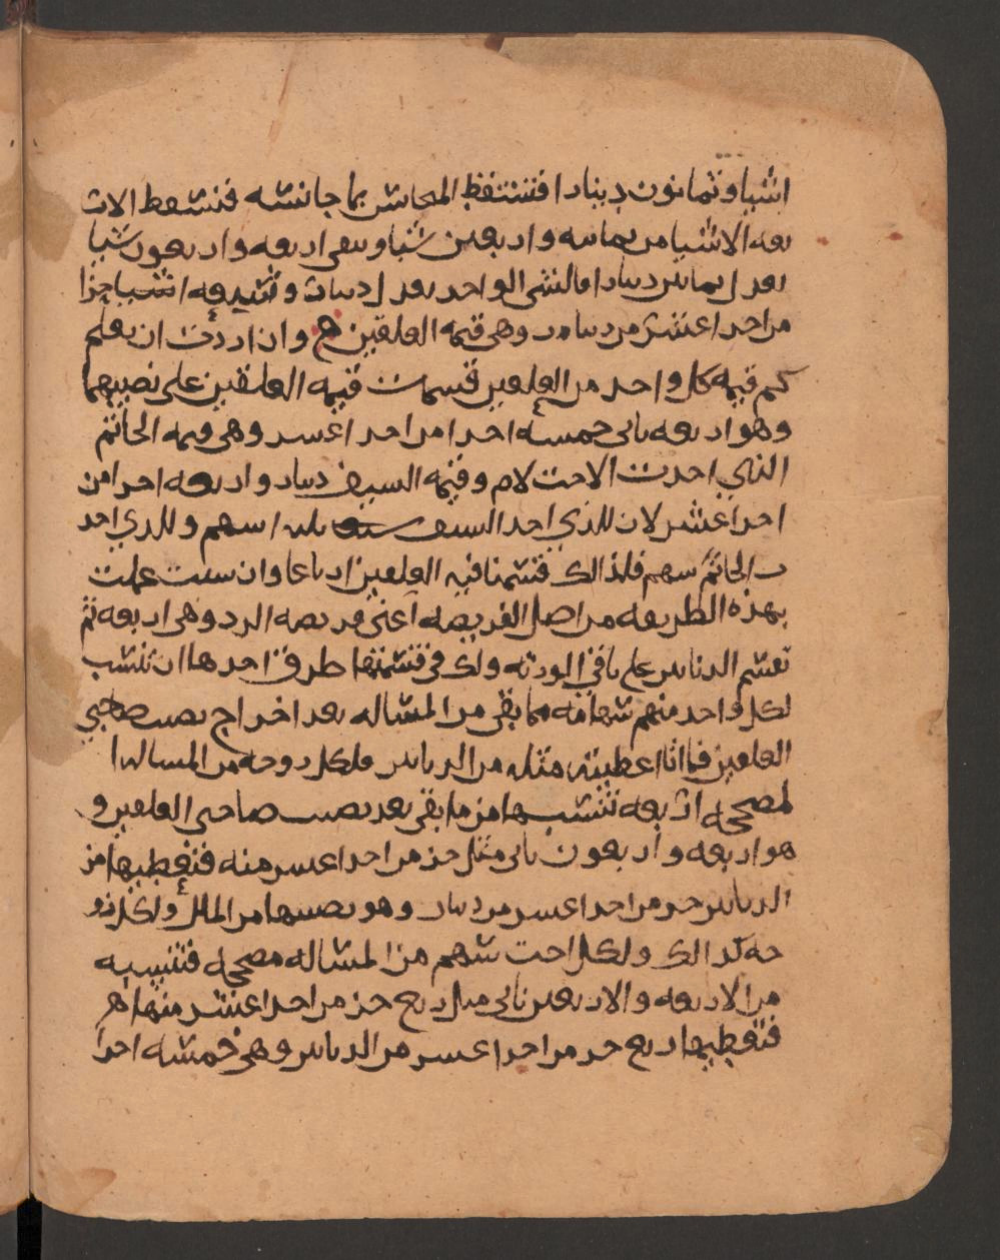 اشيا وثمانون دينارا فتسقط المجانس بما جانسه فتسقط الار
بعه الاشيا من ثمانيه واربعين شيا ويبقى اربعه واربعون شيا
يعدل ثمانين دينارا فالشي الواحد يعدل دينار وتسعه اشيا جزا
من احد اعشر من دينار وهي قيمه العلقين وان اردت ان تعلم
كم قيمه كل واحد من العلقين قسمت قيمه العلقين على نصيبهما
وهو اربعه ياتي خمسه احدا من احد اعشر وهي قيمه الخاتم
الذي اخذت الاخت لام وقيمه السيف دينار واربعه احدا من
احد اعشر لان للذي اخذ السيف ثلاثه اسهم وللذي اخذ
ت الخاتم سهم فلذالك قسمنا قيمه العلقين ارباعا وان شيت عملت
بهذه الطريقه من اصل الفريضه اعني فريضه الرد وهي اربعه ثم
تقسم الدنانير على باقي الورثه ولك في قسمتها طرق احدها ان تنسب
لكل واحد منهم سهامه مما بقي من المساله بعد اخراج نصيب صاحبي
العلقين فما اتا اعطيته مثله من الدنانير فلكل زوجه من المساله ا
لمصححه اربعه تنسبها من ما بقي بعد نصيب صاحبي العلقين و
هو اربعه واربعون ياتي مثل جز من احد اعشر منه فتعطيها من
الدنانير جز من احد اعشر من دينار وهو نصيبها من المال ولكل زو
جه كذالك ولكل اخت سهم من المساله مصححه فتنسبه
من الاربعه والاربعين ياتي مثل ربع جز من احد اعشر منها
فتعطيها ربع جز من احد اعشر من الدنانير وهي خمسه احدا